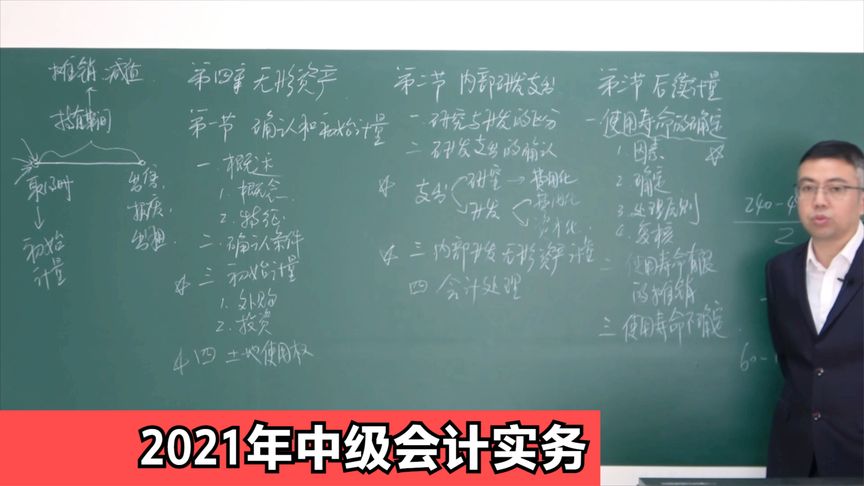 摊销 减值
持有期间
取得时
初始
计量
出售、
报废、
出租
第四章 无形资产
第一节 确认和初始计量
一.概述
1.概念
2.特征
二.确认条件
三 初始计量
1.外购
2.投资
四 土地使用权
第二节 内部研发支出
一.研究与开发的区分
二.研发支出的确认
支出
研究 → 费用化
开发
费用化
资本化
三 内部开发无形资产计量
四 会计处理
第三节 后续计量
一 使用寿命的确定
1.因素
2.确定
3.处理原则
4.复核
二 使用寿命有限
的摊销
三 使用寿命不确定
240-4
2
60-
2021年中级会计实务